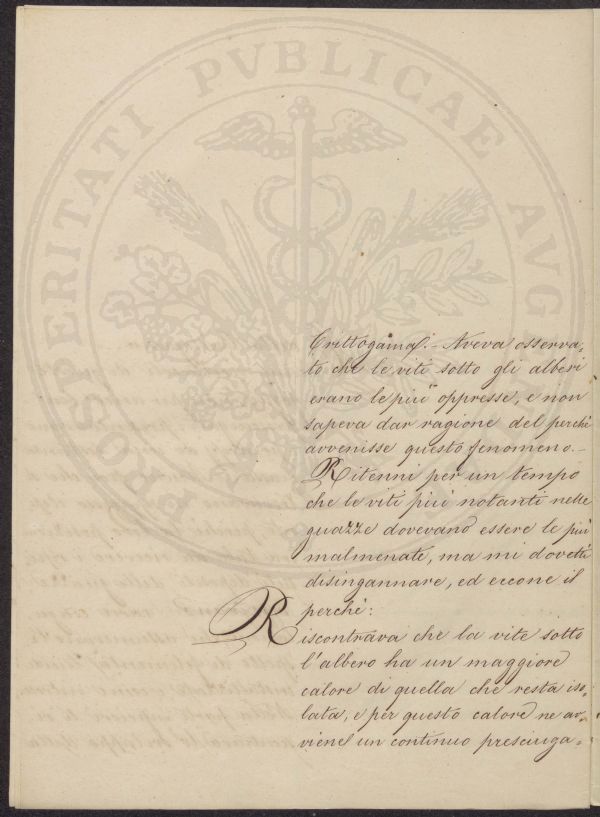 PROSPERITATI PVBLICAE AVGENDAE
Crittogama. – Aveva osserva-
to che le viti sotto gli alberi
erano le più oppresse, e non
sapeva dar ragione del perchè
avvenisse questo fenomeno. –
Ritenni per un tempo
che le viti più notanti nelle
guazze dovevano essere le più
malmenate, ma mi dovetti
disingannare, ed eccone il
perchè:
Riscontrava che la vite sotto
l'albero ha un maggiore
calore di quella che resta iso-
lata, e per questo calore ne av-
viene un continuo presciuga-